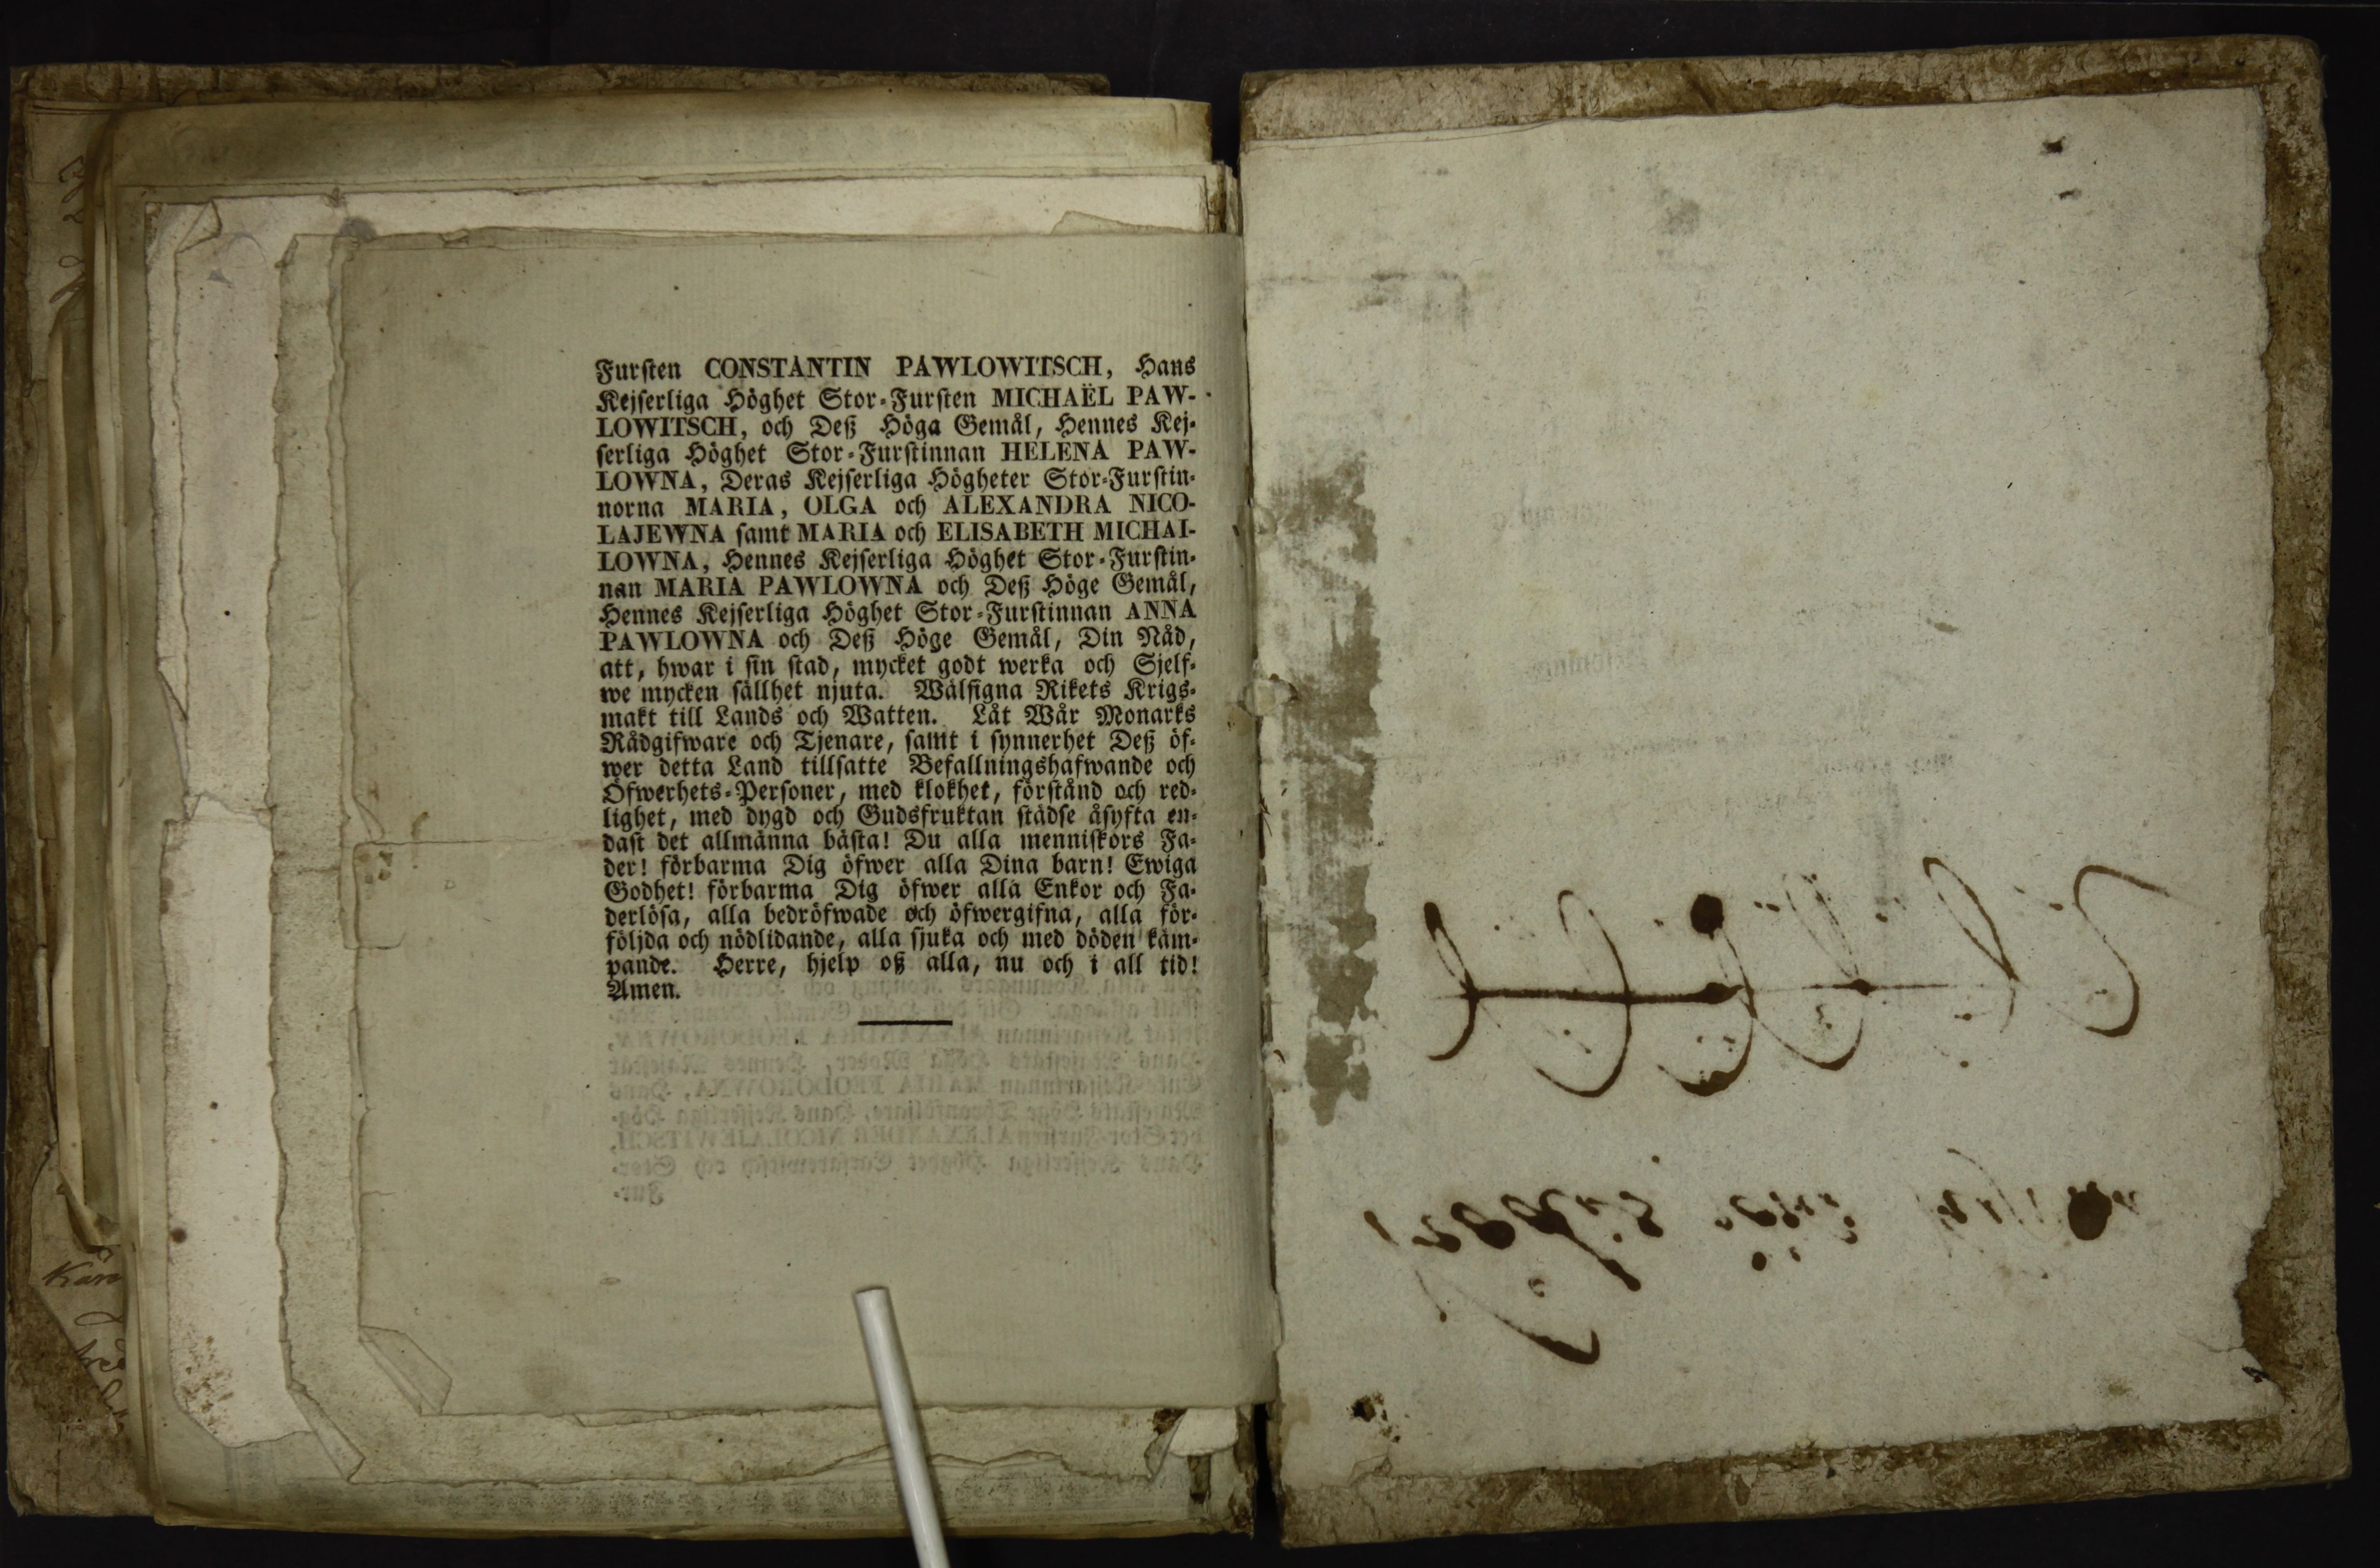 Fursten CONSTANTIN PAWLOWITSCH, Hans
Kejserliga Höghet Stor-Fursten MICHAËL PAW-
LOWITSCH, och Deß Höga Gemål, Hennes Kej-
serliga Höghet Stor-Furstinnan HELENA PAW-
LOWNA, Deras Kejserliga Högheter Stor-Furstin-
norna MARIA, OLGA och ALEXANDRA NICO-
LAJEWNA samt MARIA och ELISABETH MICHAI-
LOWNA, Hennes Kejserliga Höghet Stor-Furstin-
nan MARIA PAWLOWNA och Deß Höge Gemål,
Hennes Kejserliga Höghet Stor-Furstinnan ANNA
PAWLOWNA och Deß Höge Gemål, Din Nåd,
att, hwar i sin stad, mycket godt werka och Sjelf-
we mycken sällhet njuta. Wälsigna Rikets Krigs-
makt till Lands och Watten. Låt Wår Monarks
Rådgifware och Tjenare, samt i synnerhet Deß öf-
wer detta Land tillsatte Befallningshafwande och
Öfwerhets-Personer, med klokhet, förstånd och red-
lighet, med dygd och Gudsfruktan städse åsyfta en-
dast det allmänna bästa! Du alla menniskors Fa-
der! förbarma Dig öfwer alla Dina barn! Ewiga
Godhet! förbarma Dig öfwer alla Enkor och Fa-
derlösa, alla bedröfwade och öfwergifna, alla för-
följda och nödlidande, alla sjuka och med döden käm-
pande. Herre, hjelp oß alla, nu och i all tid!
Amen.